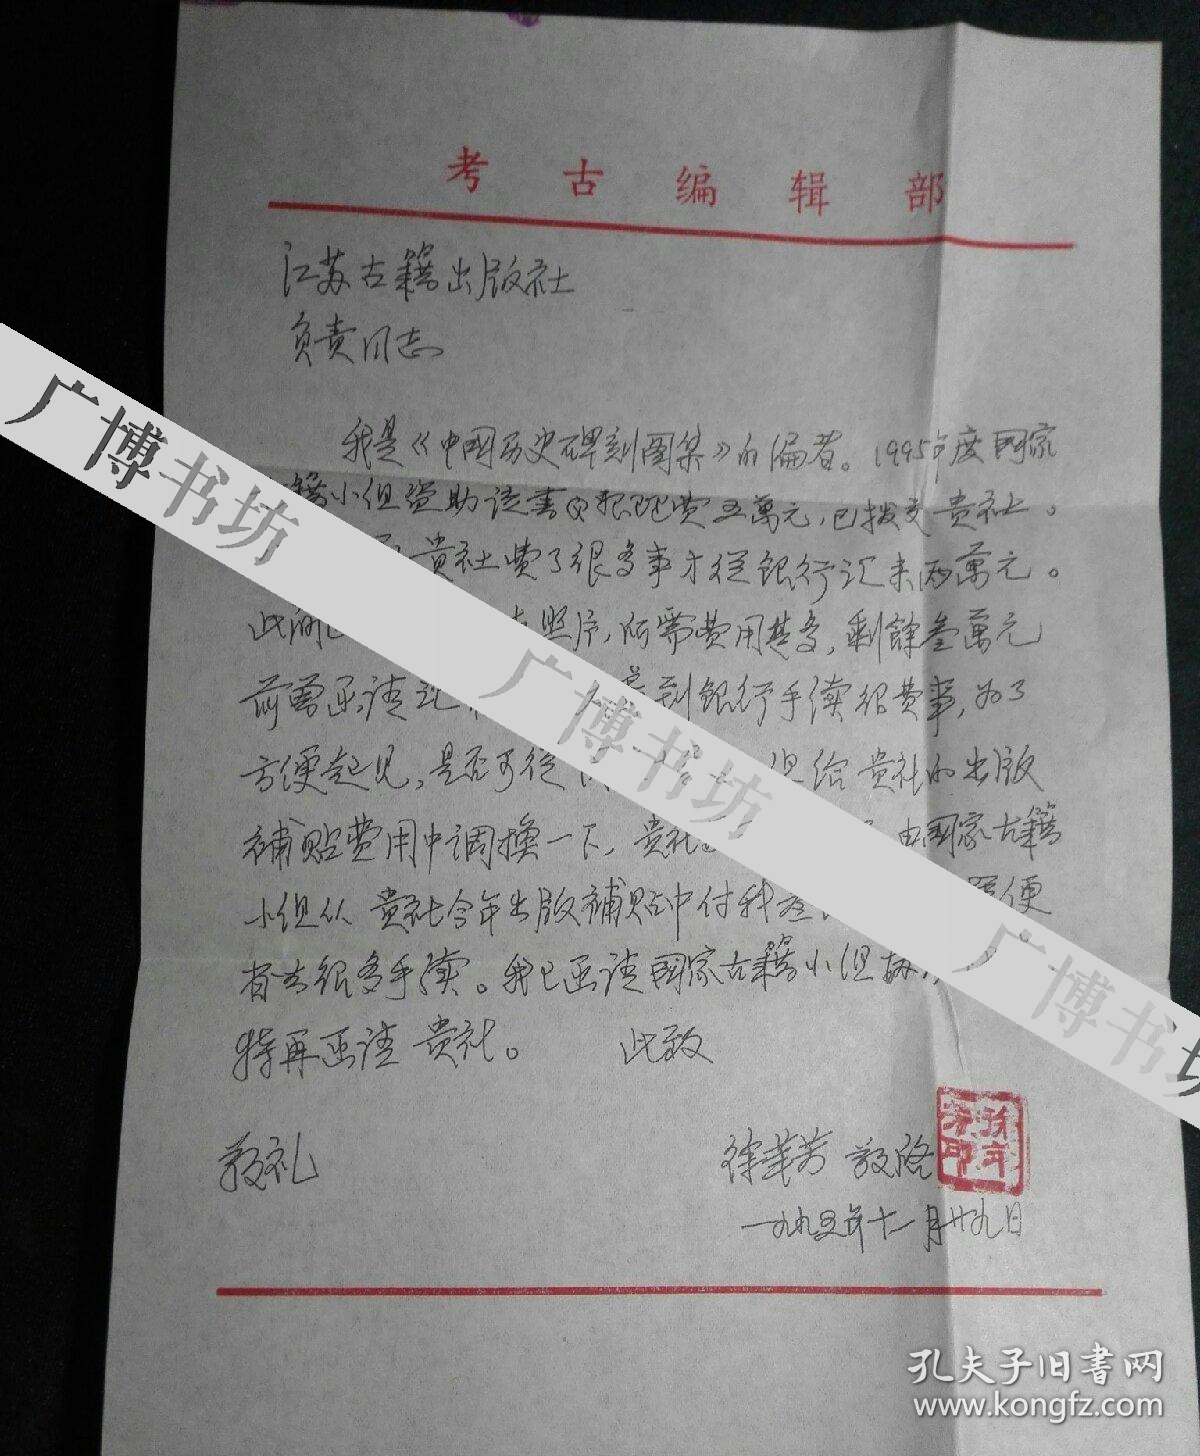 考古编辑部
江苏古籍出版社
负责同志
我是《中國历史碑刻图集》的编者。1995年度國家
籍小组资助该書照费五萬元,已拨交贵社。
贵社费了很多事才從银行汇来两萬元。
此间照片,所需费用甚多,剩餘叁萬元
前曾函请到银行手续很费事,为了
方便起见,是否可從给贵社的出版
補贴费用中调换一下,贵社由國家古籍
小组从贵社今年出版補贴中付我便
省去很多手续。我已函请國家古籍小组
特再函请贵社。 此致
敬礼
徐苹芳 敬啓
徐苹芳印
一九九五年十一月廿九日
广博书坊
广博书坊
广博书坊
孔夫子旧书网
www.kongfz.com